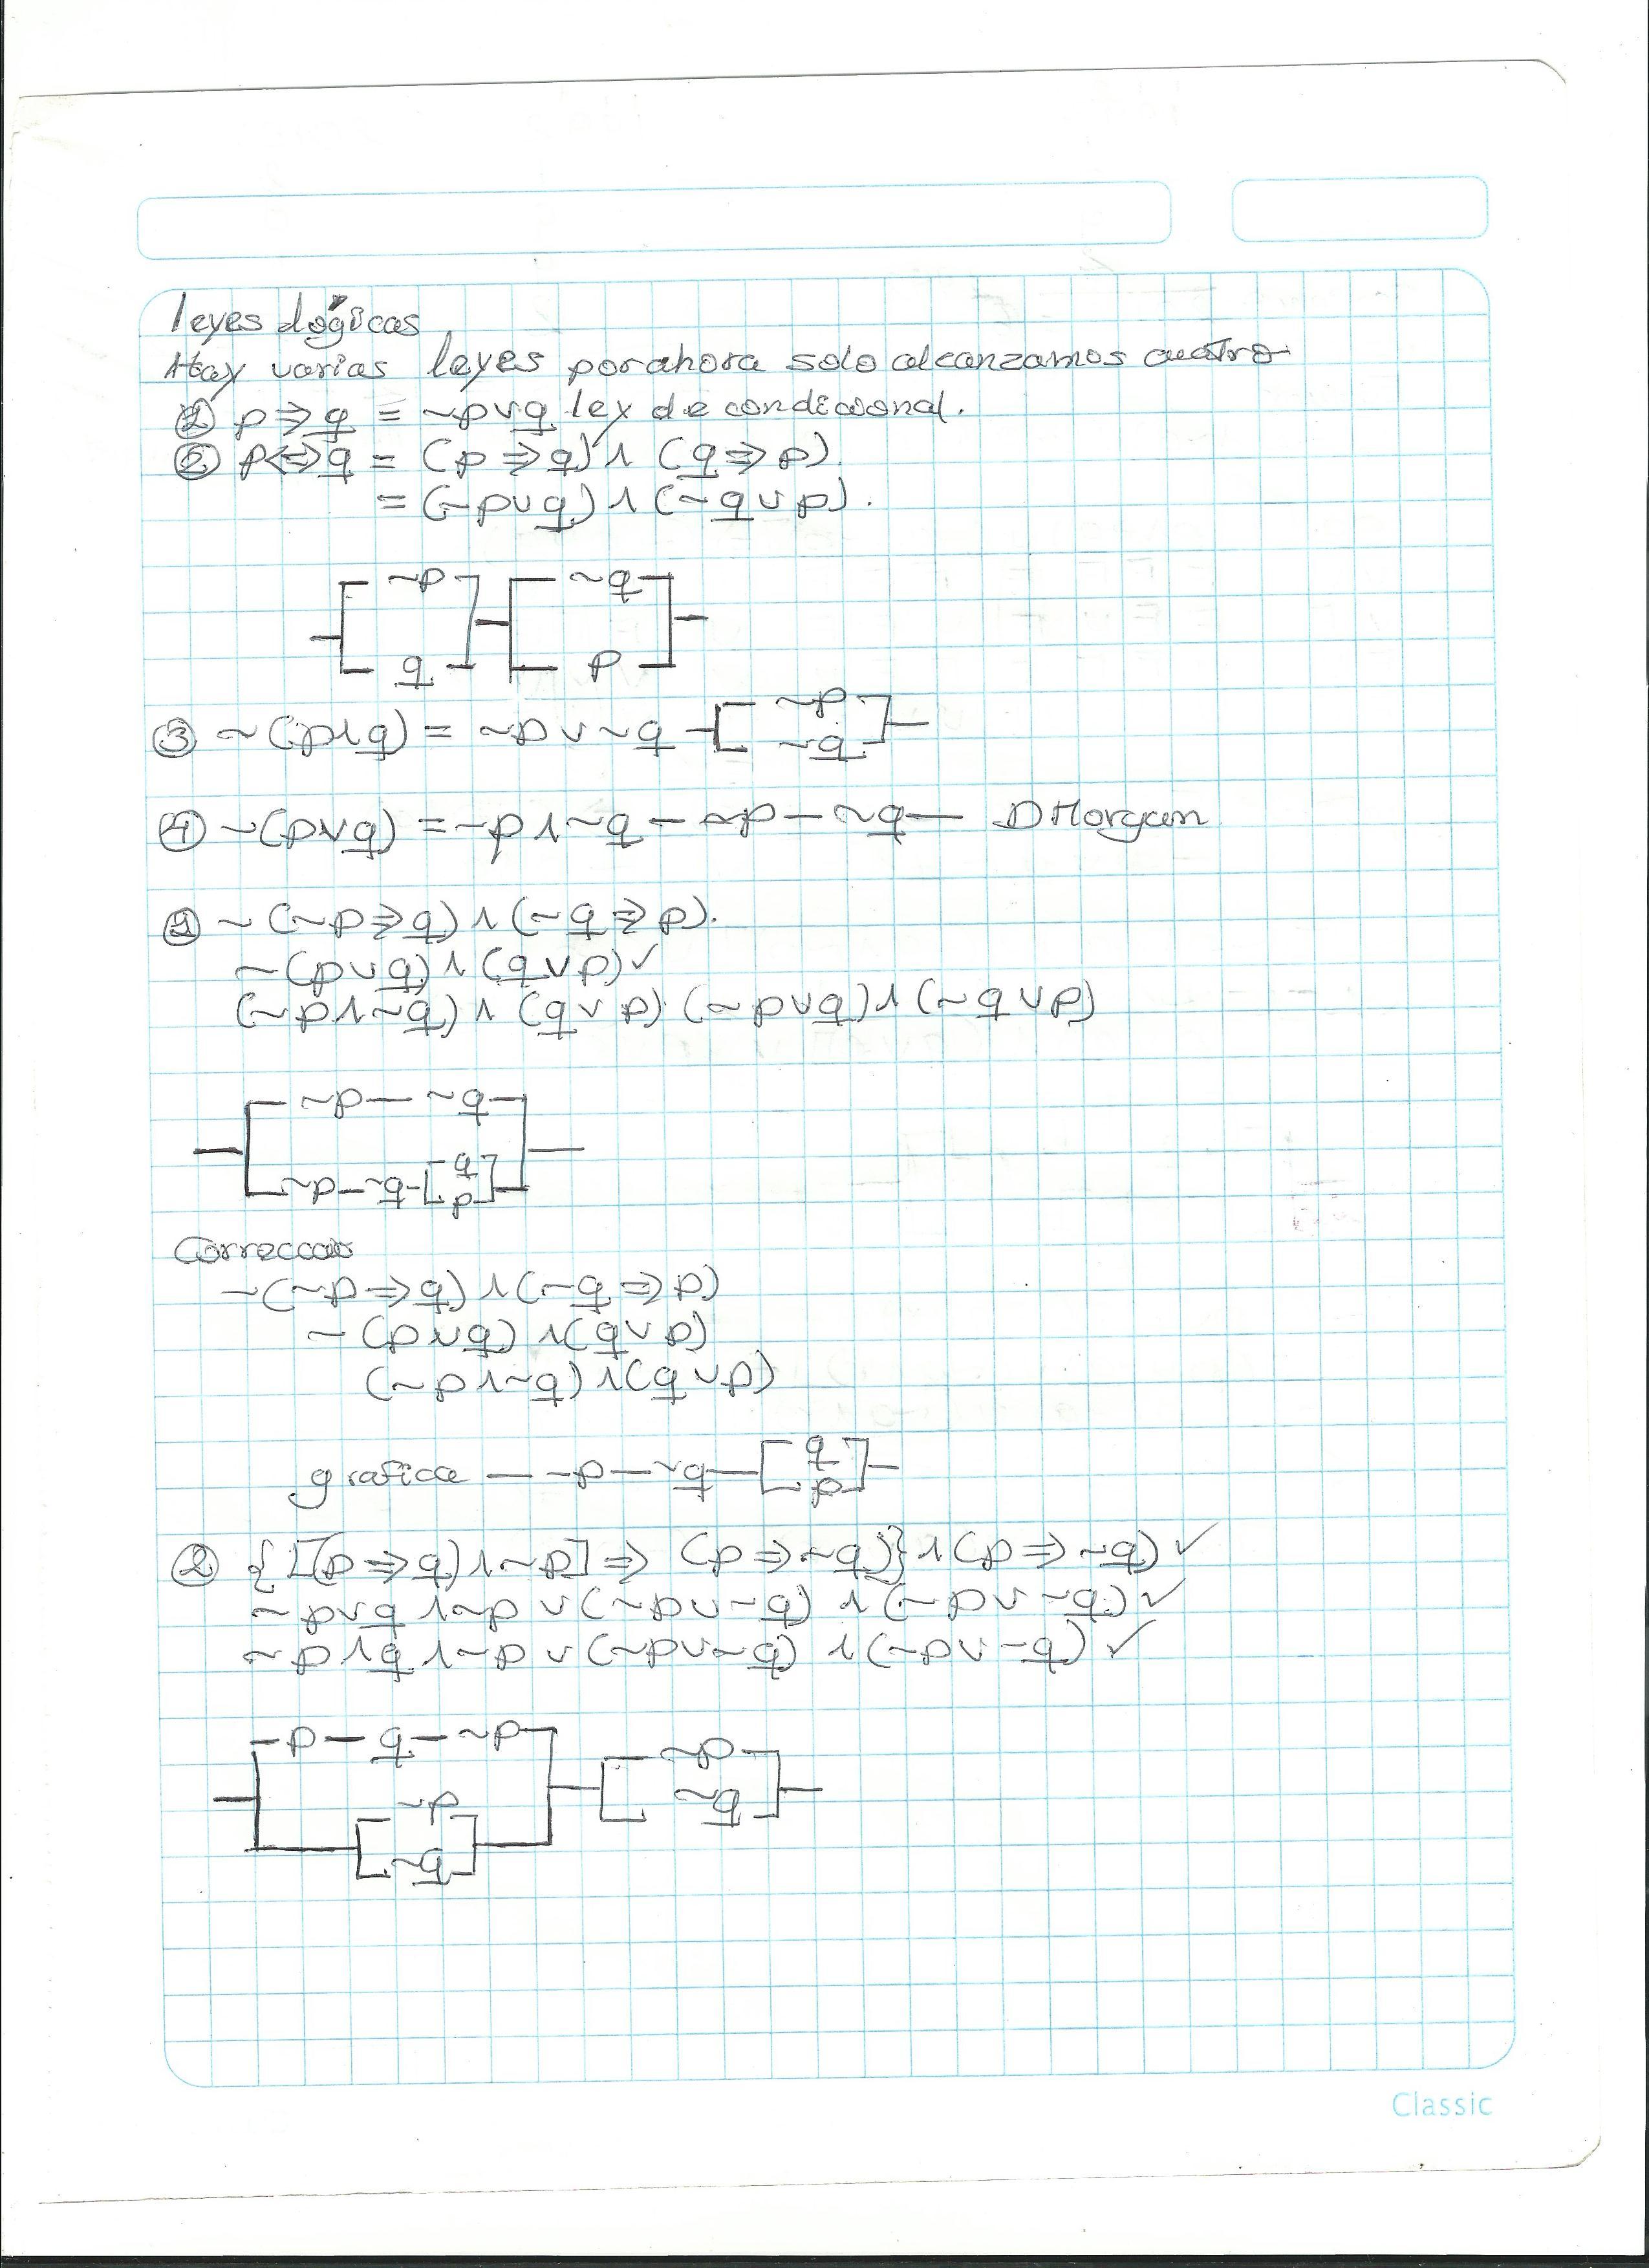 leyes lógicas
Hay varias leyes por ahora solo alcanzamos cuatro
① p ⇒ q = ~p∨q ley de condicional.
② p⇔q = (p ⇒ q) ∧ (q ⇒ p).
= (~p∨q) ∧ (~q∨p).
~p ~q
q p
③ ~(p∧q) = ~p ∨ ~q ~p
~q
④ ~(p∨q) = ~p ∧ ~q — ~p — ~q — DMorgan
① ~(~p ⇒ q) ∧ (~q ⇒ p).
~(p∨q) ∧ (q∨p) ✓
(~p∧~q) ∧ (q∨p) (~p∨q) ∧ (~q∨p)
~p — ~q
~p — ~q q
p
Correccion
~(~p ⇒ q) ∧ (~q ⇒ p)
~(p∨q) ∧ (q∨p)
(~p∧~q) ∧ (q∨p)
grafica — ~p — ~q — q
p
② {[(p ⇒ q) ∧ ~p] ⇒ (p ⇒ ~q)} ∧ (p ⇒ ~q) ✓
~p∨q ∧ ~p ∨ (~p∨~q) ∧ (~p∨~q) ✓
~p∧q ∧ ~p ∨ (~p∨~q) ∧ (~p∨~q) ✓
-p — q — ~p ~p
~q
~p
~q
Classic